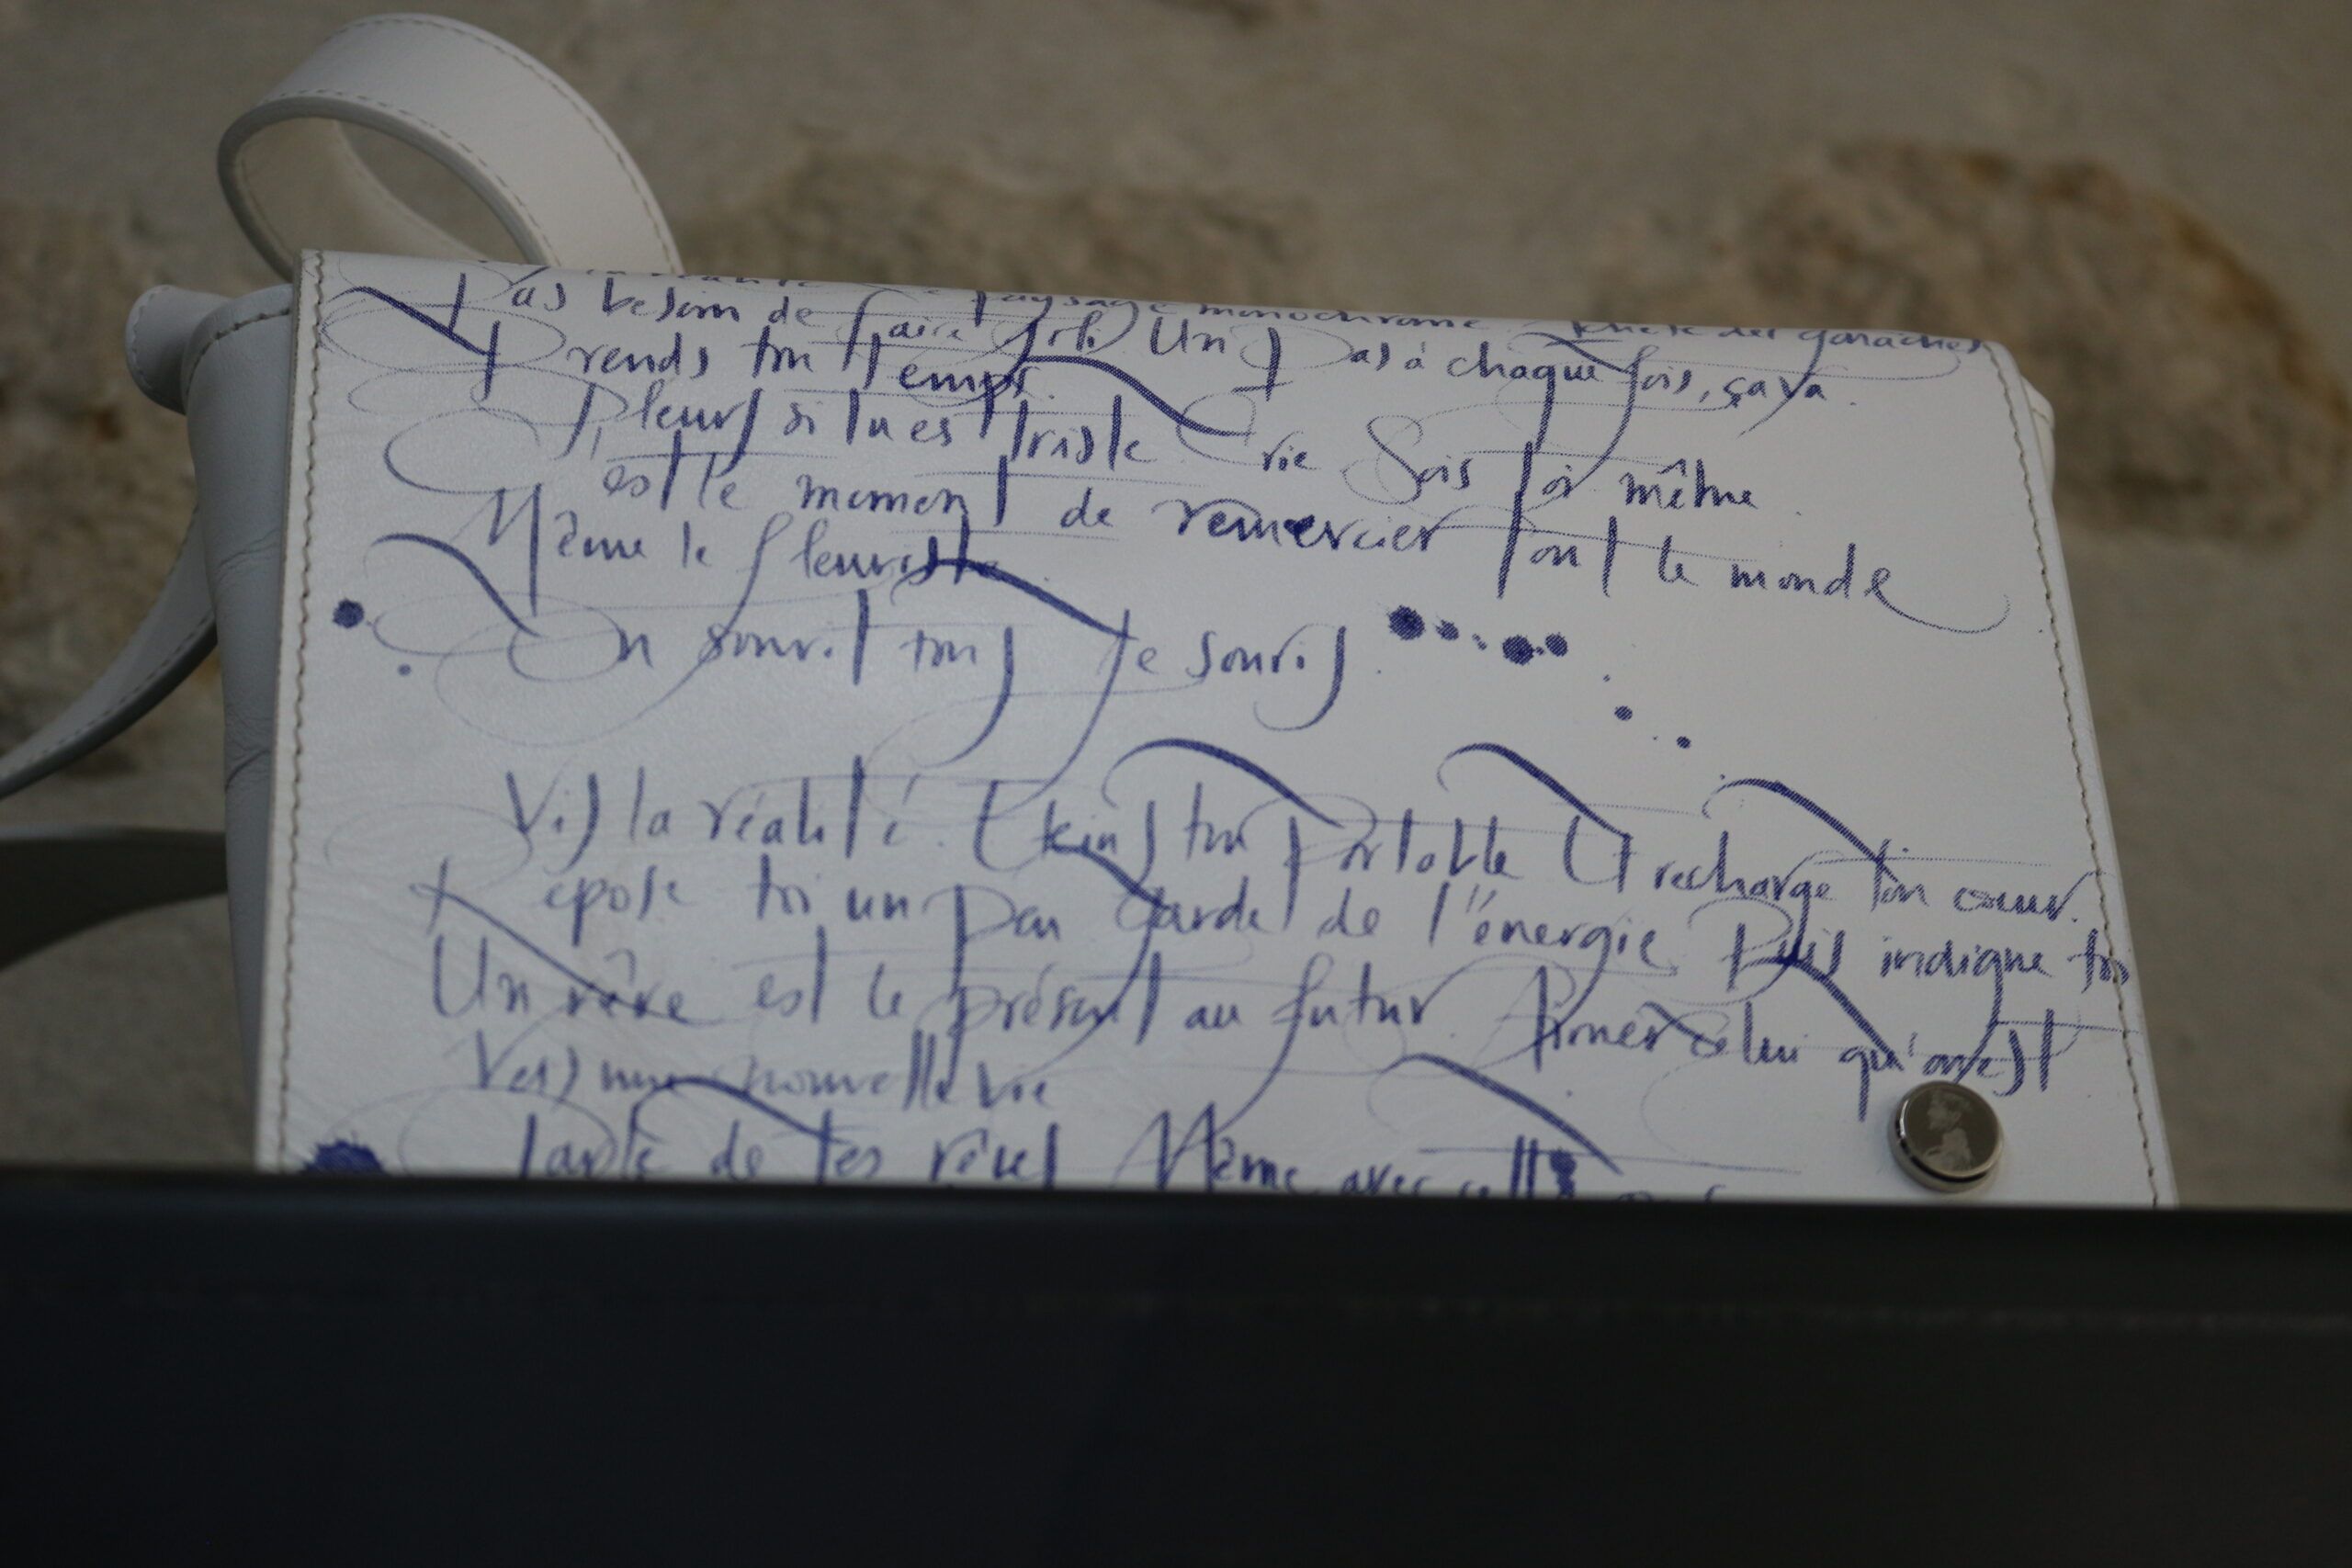 paysage monochrome
Pas besoin de faire joli Un pas à chaque fois, ça va.
Prends ton temps.
Pleurs si tu es triste Crie Sois toi même.
C'est le moment de remercier tout le monde
Même le fleuriste.
On sourit tous Je souris.
Vis la réalité. Eteins ton portable Et recharge ton cœur.
Repose toi un peu Garde de l'énergie Puis indigne toi
Un rêve est le présent au futur. Aimer celui qu'on est
Vers une nouvelle vie
Parle de tes rêves Même avec cette